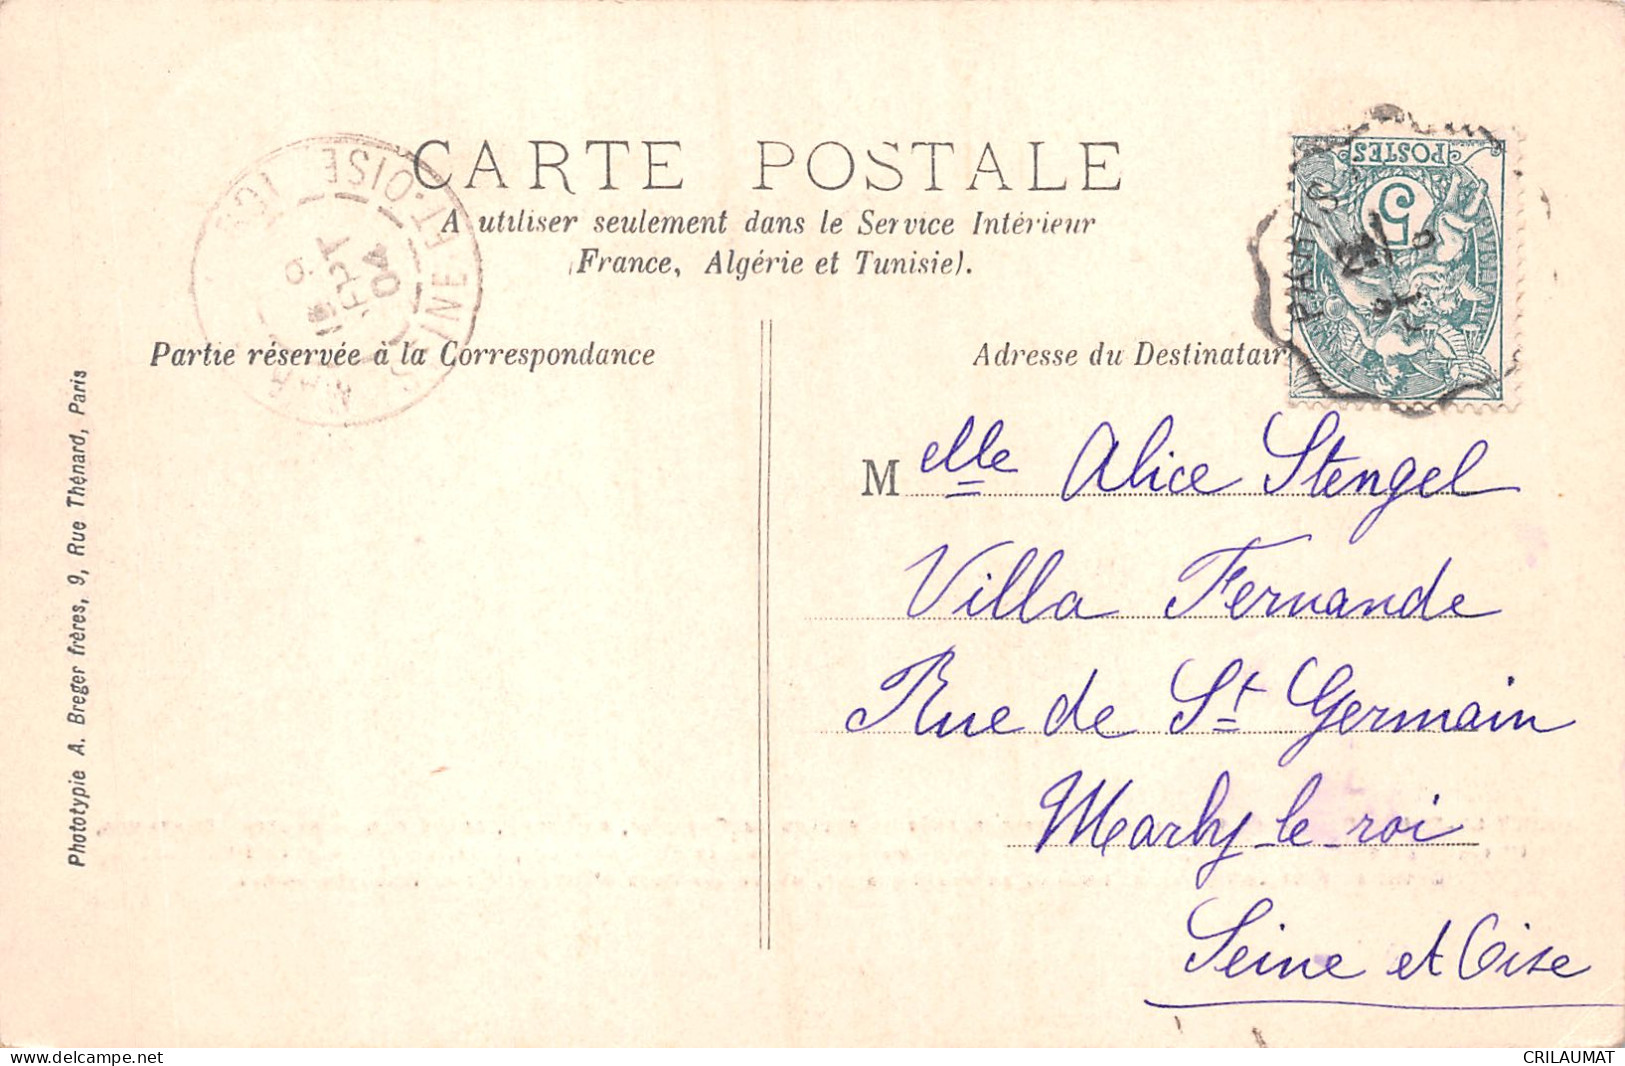 CARTE POSTALE
A utiliser seulement dans le Service Intérieur
(France, Algérie et Tunisie).
Partie réservée à la Correspondance
Adresse du Destinatair
POSTES
5
PARIS
SEINE-ET-OISE
SEPT
04
Melle Alice Stengel
Villa Fernande
Rue de St Germain
Marly-le-roi
Seine et Oise
Phototypie A. Breger frères, 9, Rue Thénard, Paris
CRILAUMAT